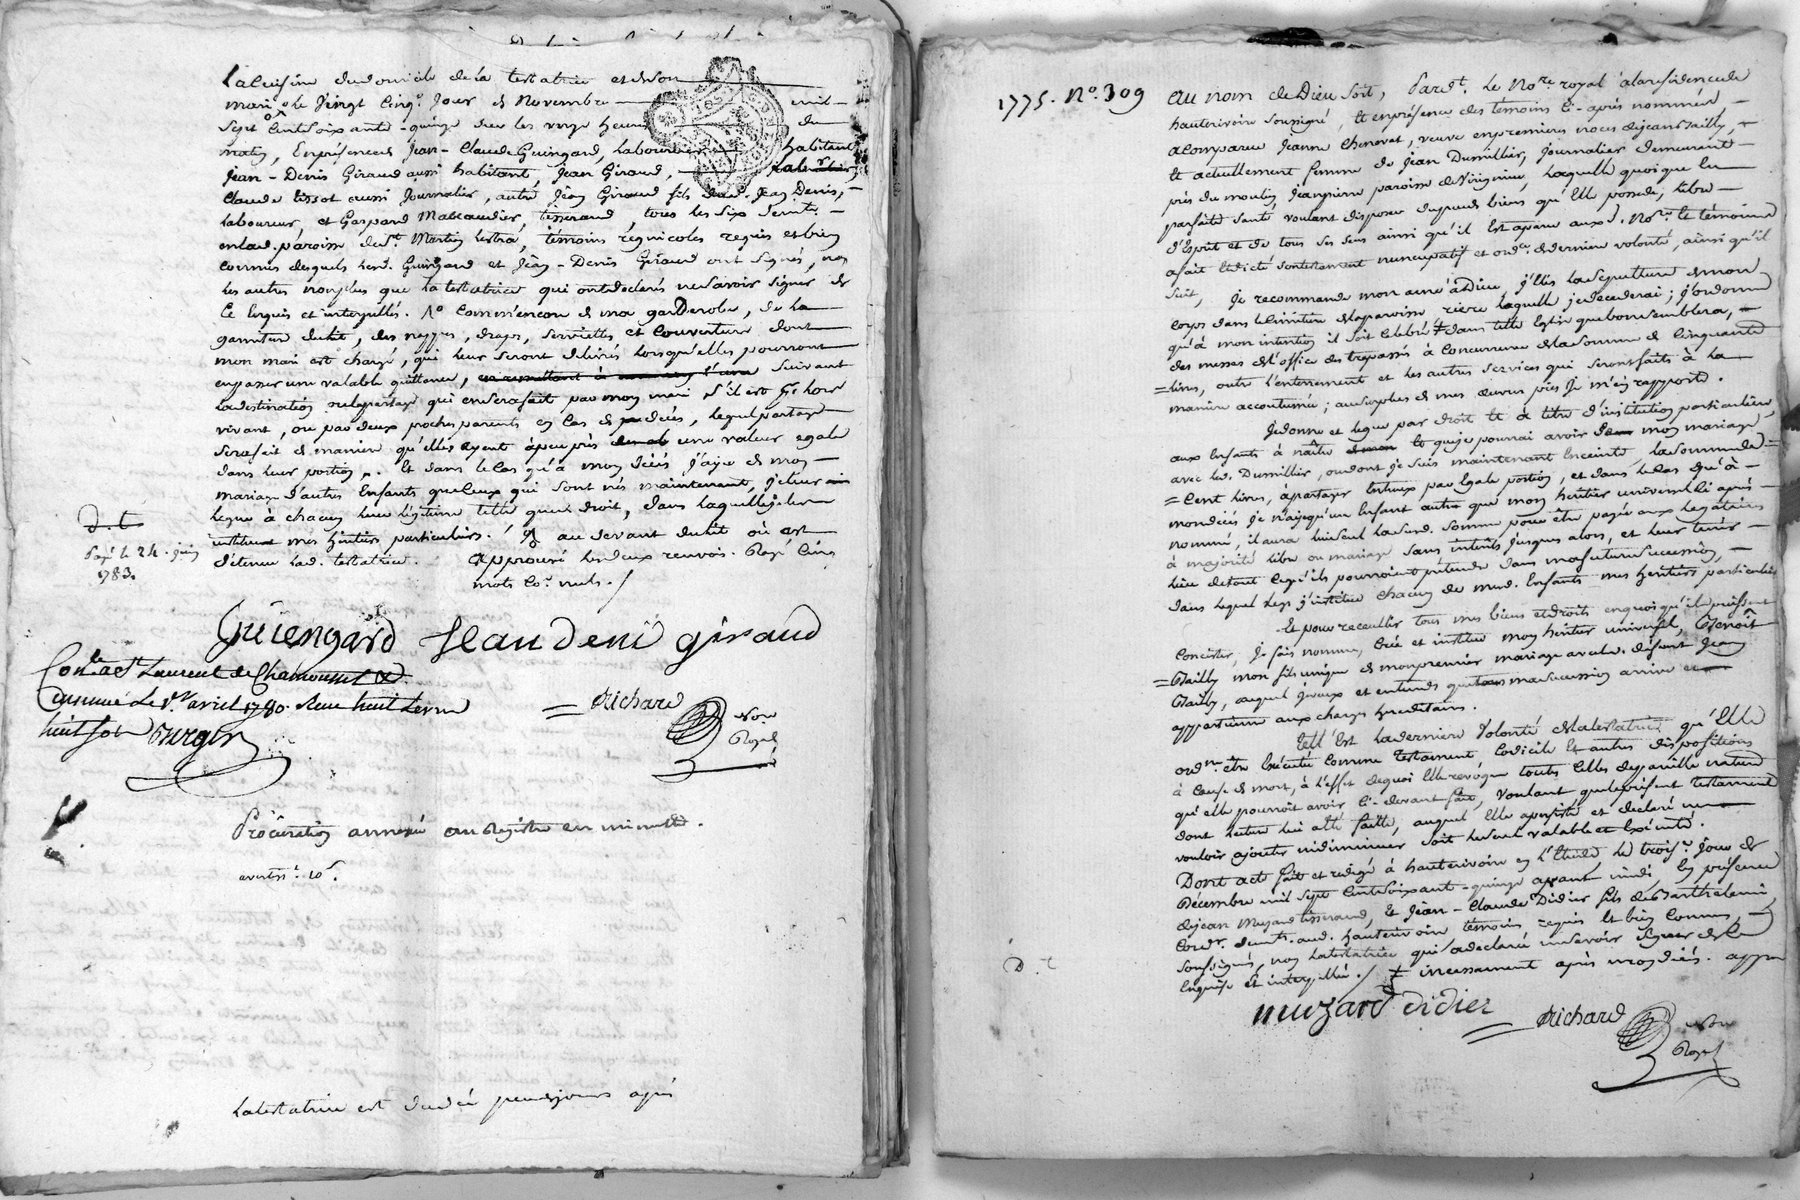 la cuisine du domicile de la testatrice et de son
mari, le vingt cinq.e jour de Novembre mil
sept cent soixante-quinze sur les onze heures du
matin, En présence de Jean-Claude Guingard, laboureur habitant
Jean-Denis Giraud aussi habitant, Jean Giraud,
Claude tissot aussi Journalier, autre Jean Giraud fils dud. Jean Denis,
laboureur, et Gaspard Mascaudier, tisserand, tous les six
en lad. paroisse de St. Martin lestra, témoins régnicoles requis et bien
connus desquels lesd. Guingard et Jean-Denis Giraud ont signés, non
les autres non plus que la testatrice qui ont déclarés ne savoir signer de
ce enquis et interpellés. de ma garderobe, de la
garniture du lit, des nappes, draps, serviettes et couverture dont
mon mari est chargé, qui leur seront délivrés lorsqu'elles pourront
en passer une valable quittance, suivant
la destination ou le partage qui en sera fait par mon mari s'il est lors
vivant, ou par deux proches parents en cas de décès, lequel partage
sera fait de manière qu'elles ayent à peu près une valeur egale
dans leur portion. Et dans le cas qu'à mon décès j'aye de mon
mariage d'autres Enfants que ceux qui sont nés maintenant, je leur
legue à chacun leur légitime telle que de droit, dans laquelle je les
institue mes héritiers particuliers. au devant du lit où est
détenue lad. testatrice. Approuvé les deux renvois. Rayé cinq
mots co.e nuls.
D. t.
Payé le 24. juin
1783.
Guiengard Jean denî giraud
Con.lé à St Laurent de Chamousset
le 1.er avril 1780. Reçu huit livres
huit sols Purger
Richard
Not.re
Royal
Procuration annexée au Registre en minutte.
avertss.t 10s.
la testatrice est décédée peu de jours après
1775. No. 309
Au nom de Dieu soit, Pard.t le No.re royal à la résidence de
hauterivoire soussigné, Et en présence des témoins ci-après nommés,
a comparue Jeanne Chenevat, veuve en premieres noces de jean Bailly,
Et actuellement femme de Jean Dumillier, journalier demeurant
près du moulin, Jeanpierre paroisse de Virignieu, Laquelle quoique en
parfaite santé voulant disposer du peu de biens qu'Elle possede, libre
d'Esprit et de tous ses sens ainsi qu'il Est aparu aux d. No.re et témoins
a fait et dicté son testament nuncupatif et ord.ce de derniere volonté, ainsi qu'il
suit, Je recommande mon ame à Dieu, j'Elis la sépulture de mon
corps dans le cimitiere de la paroisse rière laquelle je décéderai; j'ordonne
qu'à mon intention il soit célébré ‡ dans telle Eglise que bon semblera,
des messes de l'office des trepassés à concurrence de la somme de cinquante
livres, outre l'enterrement et les autres services qui seront faits à la
manière accoutumée; au surplus de mes œuvres pies Je m'en rapporte.
Je donne et legue par droit et à titre d'institution particulière,
aux Enfants à naître et que je pourrai avoir de mon mariage
avec led. Dumillier, ou dont je suis maintenant Enceinte, la somme de
Cent livres, à partager entr'eux par égale portion, et dans le cas qu'à
mon décès je n'aye qu'un Enfant autre que mon héritier universel ci-après
nommé, il aura lui seul lad. somme pour être payée aux legataires
à majorité libre ou mariage sans intérêts jusques alors, et leur tenir
lieu de tout ce qu'ils pourroient prétendre dans ma future succession,
dans lequel legs j'institue chacun de mesd. Enfants mes héritiers particuliers
Et pour recueillir tous mes biens et droits en quoi qu'ils puissent
Consister, Je fais nomme, crée et institue mon héritier universel, Benoît
Bailly mon fils unique de mon premier mariage avec led. défunt Jean
Bailly, auquel je veux et entends que ma succession arrive et
appartienne aux charges héréditaires.
telle Est la derniere volonté de la testatrice qu'Elle
ord.ne être Exécutée comme Testament, Codicile Et autres dispositions
à Cause de mort, à l'effet de quoi Elle revoque toutes celles de pareille nature
qu'elle pourroit avoir ci-devant fait, Voulant que le présent testament
dont lecture lui a été faitte, auquel Elle a persisté et déclaré ne
vouloir ajouter ni diminuer soit le seul valable et Exécuté.
Dont acte fait et rédigé à hauterivoire en l'Etude le trois.e jour de
Décembre mil sept cent soixante-quinze avant midi, En présence
de jean Muzard tisserand, Et Jean-Claude Didier fils de Barthelemi,
Cord.r dem.ts aud. hauterivoire témoins requis Et bien connus,
soussignés, non la testatrice qui a déclaré ne savoir signer de ce
Enquise Et interpellée. / ‡ incessament après mon décès. appr
D. t
muzard didier
Richard
Not.re
Royal